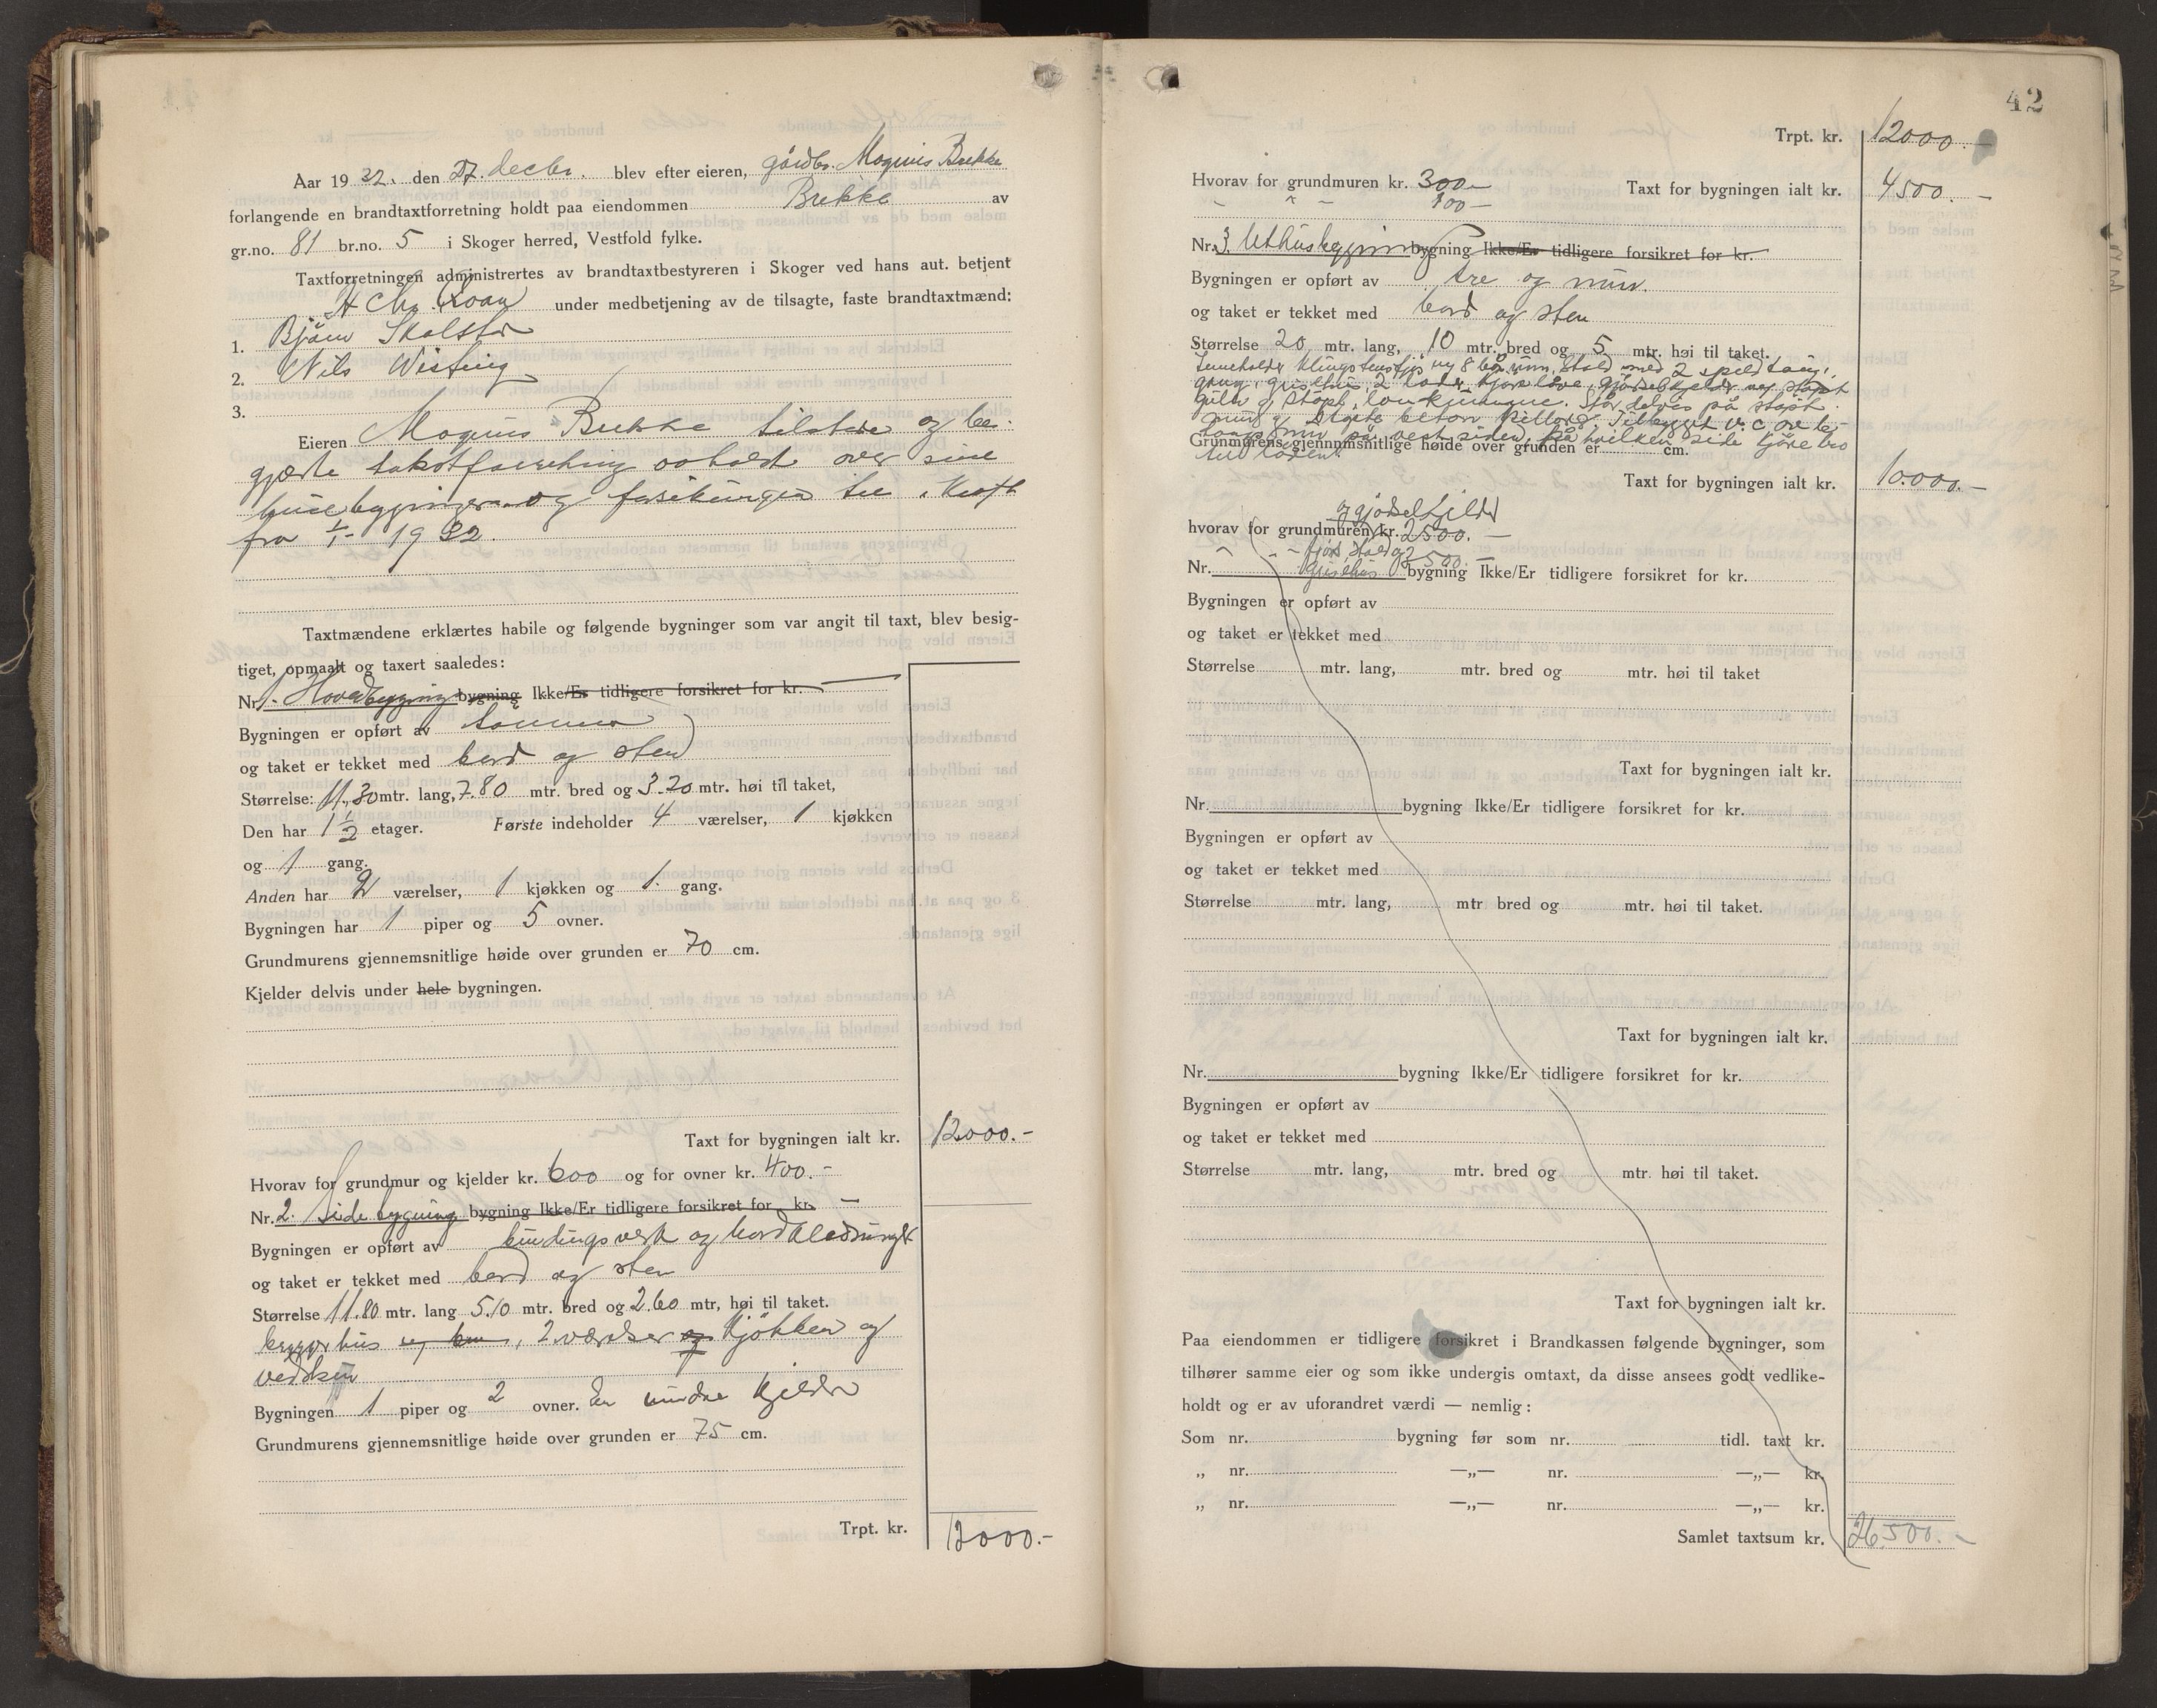 Aar 1932. den 27. decbr. blev efter eieren, gårdbr. Magnus Brekke
forlangende en brandtaxtforretning holdt paa eiendommen Brekke av
gr.no. 81 br.no. 5 i Skoger herred, Vestfold fylke.
Taxtforretningen administrertes av brandtaxtbestyreren i Skoger ved hans aut. betjent
H Chr. Roan under medbetjening av de tilsagte, faste brandtaxtmænd:
1. Bjarne Skalstad
2. Nils Wisting
3.
Eieren Magnus Brekke tilstede og be-
gjærte takstforretning avholdt over sine
husebygninger og forsikringen til i kraft
fra 1/1- 1932.
Taxtmændene erklærtes habile og følgende bygninger som var angit til taxt, blev besig-
tiget, opmaalt og taxert saaledes:
Nr. 1. Hovedbygning bygning Ikke/Er tidligere forsikret for kr. —
Bygningen er opført av tømmer
og taket er tekket med bord og sten
Størrelse: 11,30 mtr. lang, 7.80 mtr. bred og 3.20 mtr. høi til taket,
Den har 1 1/2 etager. Første indeholder 4 værelser, 1 kjøkken
og 1 gang.
Anden har 2 værelser, 1 kjøkken og 1. gang.
Bygningen har 1 piper og 5 ovner.
Grundmurens gjennemsnitlige høide over grunden er 70 cm.
Kjelder delvis under hele bygningen.
Taxt for bygningen ialt kr. 12000.-
Hvorav for grundmur og kjelder kr. 600 og for ovner kr. 400.-
Nr. 2. Sidebygning bygning Ikke/Er tidligere forsikret for kr. —
Bygningen er opført av bindingsverk og bordklædning
og taket er tekket med bord og sten
Størrelse 11.80 mtr. lang 5.10 mtr. bred og 2.60 mtr, høi til taket.
bryggerhus, 2 værelser og kjøkken og
vedskur
Bygningen 1 piper og 2 ovner. En mindre kjelder
Grundmurens gjennemsnitlige høide over grunden er 75 cm.
Trpt. kr. 12000.-
42
Trpt. kr. 12000.-
Hvorav for grundmuren kr. 300.- Taxt for bygningen ialt kr. 4500.-
" " " 100 -
Nr. 3. Uthusbygning bygning Ikke/Er tidligere forsikret for kr.
Bygningen er opført av tre og mur.
og taket er tekket med bord og sten
Størrelse 20 mtr. lang, 10 mtr. bred og 5 mtr. høi til taket.
Inneholder Klingstensfjøs og 8 båsrum, Stald med 2 spiltaug,
gang, grisehus, 2 lader, kjørelåve, gjødselkjelder støpt
gulv støpt, Står delvis på støpt
mur og Tilbygget
på vest siden, på hvilken side kjørebro
Grundmurens gjennmsnitlige høide over grunden er cm.
til låven.
Taxt for bygningen ialt kr. 10.000.-
og gjødselkjelder
hvorav for grundmuren kr. 2500.-
" " - fjøs, stald og
grisehus 2500.-
Nr. bygning Ikke/Er tidligere forsikret for kr.
Bygningen er opført av
og taket er tekket med
Størrelse mtr. lang, mtr. bred og mtr. høi til taket
Taxt for bygningen ialt kr.
Nr. bygning Ikke/Er tidligere forsikret for kr.
Bygningen er opført av
og taket er tekket med
Størrelse mtr. lang, mtr bred og mtr. høi til taket.
Taxt for bygningen ialt kr.
Nr. bygning Ikke/Er tidligere forsikret for kr.
Bygningen er opført av
og taket er tekket med
Størrelse mtr. lang, mtr. bred og mtr. høi til taket.
Taxt for bygningen ialt kr.
Paa eiendommen er tidligere forsikret i Brandkassen følgende bygninger, som
tilhører samme eier og som ikke undergis omtaxt, da disse ansees godt vedlike-
holdt og er av uforandret værdi — nemlig:
Som nr. bygning før som nr. tidl. taxt kr.
„ nr. —„— nr. —„— kr.
„ nr. —„— nr. —„— kr.
Samlet taxtsum kr. 26.500.-